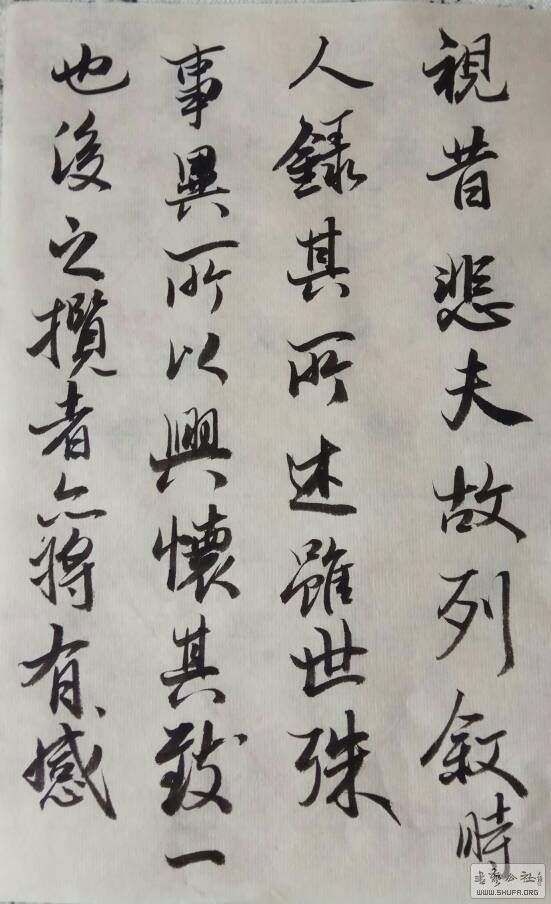 視昔悲夫故列敘時
人錄其所述雖世殊
事異所以興懷其致一
也後之攬者亦將有感
书艺公社
WWW.SHUFA.ORG